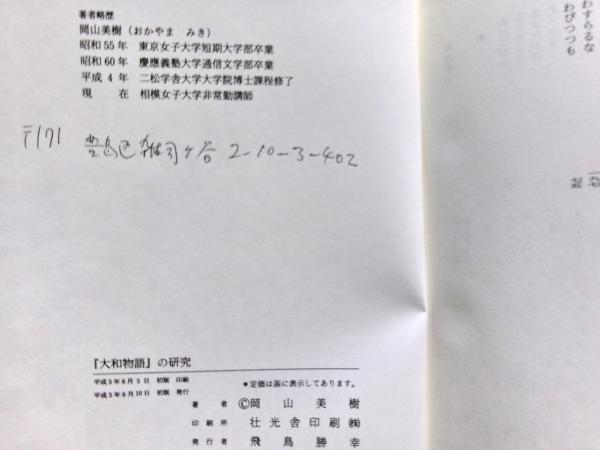 著者略歴
岡山美樹（おかやま　みき）
昭和55年　東京女子大学短期大学部卒業
昭和60年　慶應義塾大学通信文学部卒業
平成4年　二松学舎大学大学院博士課程修了
現在　相模女子大学非常勤講師
〒171　豊島区雑司ヶ谷 2-10-3-402
『大和物語』の研究
平成5年6月5日　初版　印刷
平成5年6月10日　初版　発行
＊定価は函に表示してあります。
著者　©岡山美樹
印刷所　壮光舎印刷㈱
発行者　飛鳥勝幸
わすらるな
わびつつも